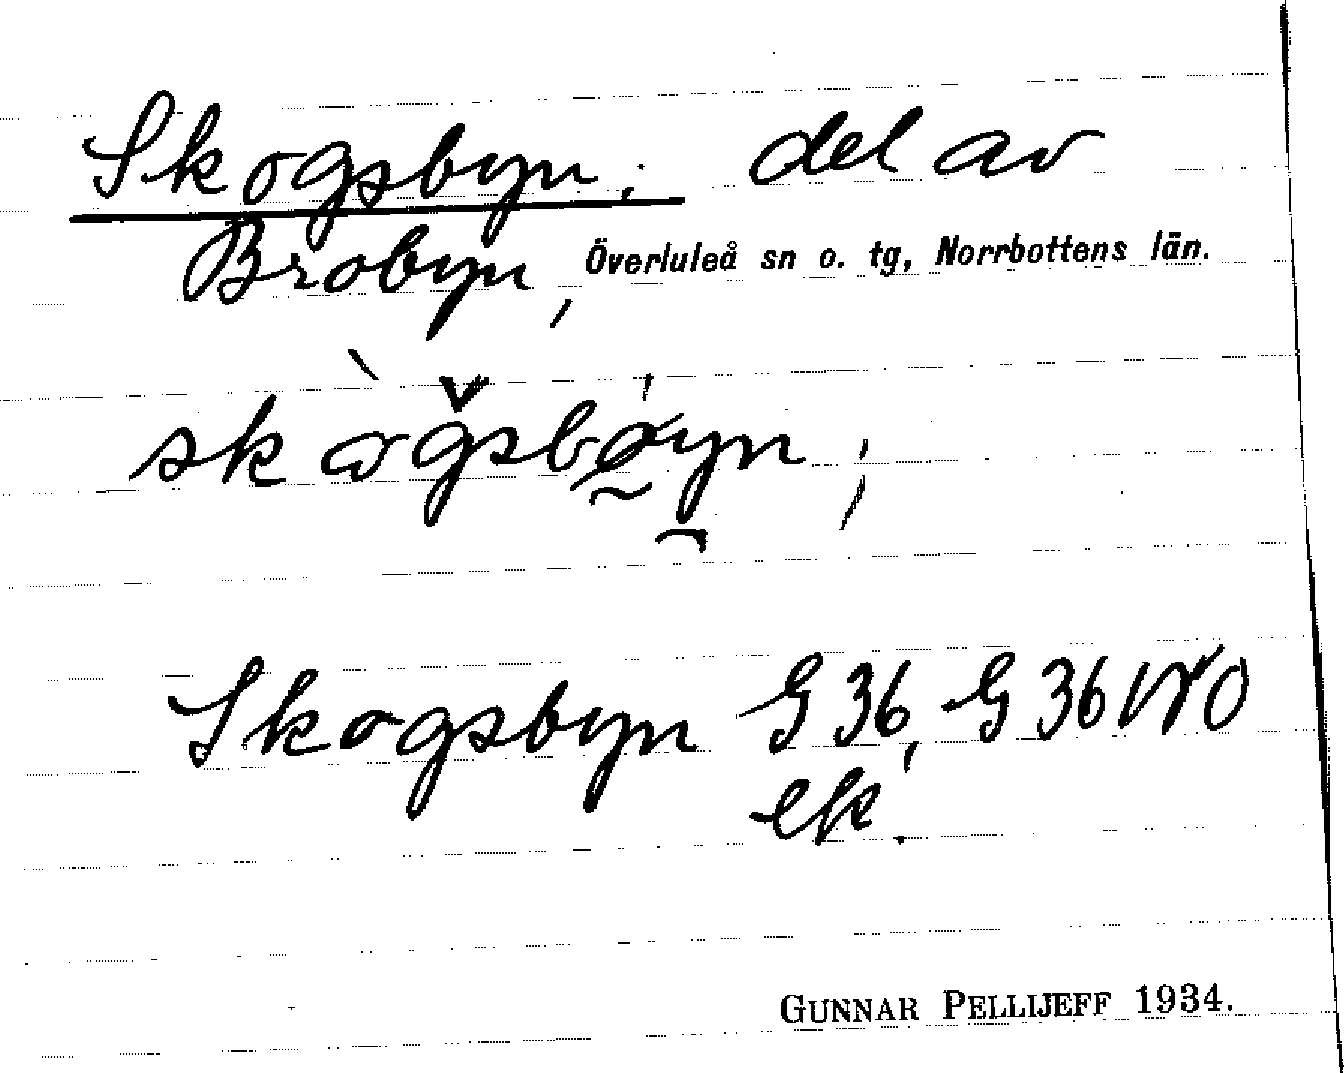 Skogsbyn; del av
Brobyn, Överluleå sn o. tg, Norrbottens län.
Skogsbyn G 36, G 36 NO
ek.
GUNNAR PELLIJEFF 1934.